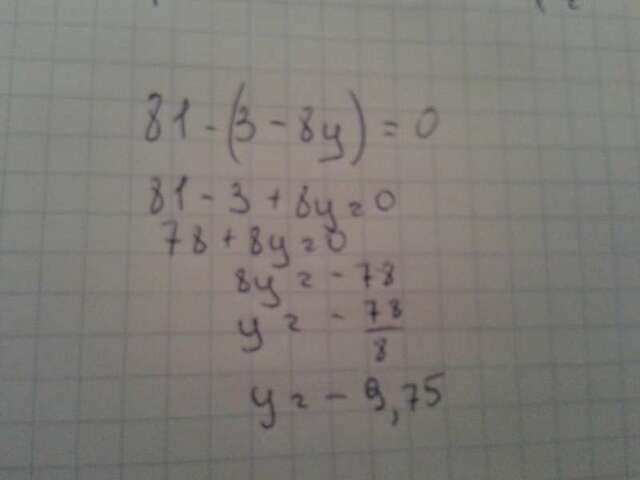 81 - (3 - 8y) = 0
81 - 3 + 8y = 0
78 + 8y = 0
8y = - 78
y = - 78/8
y = - 9,75